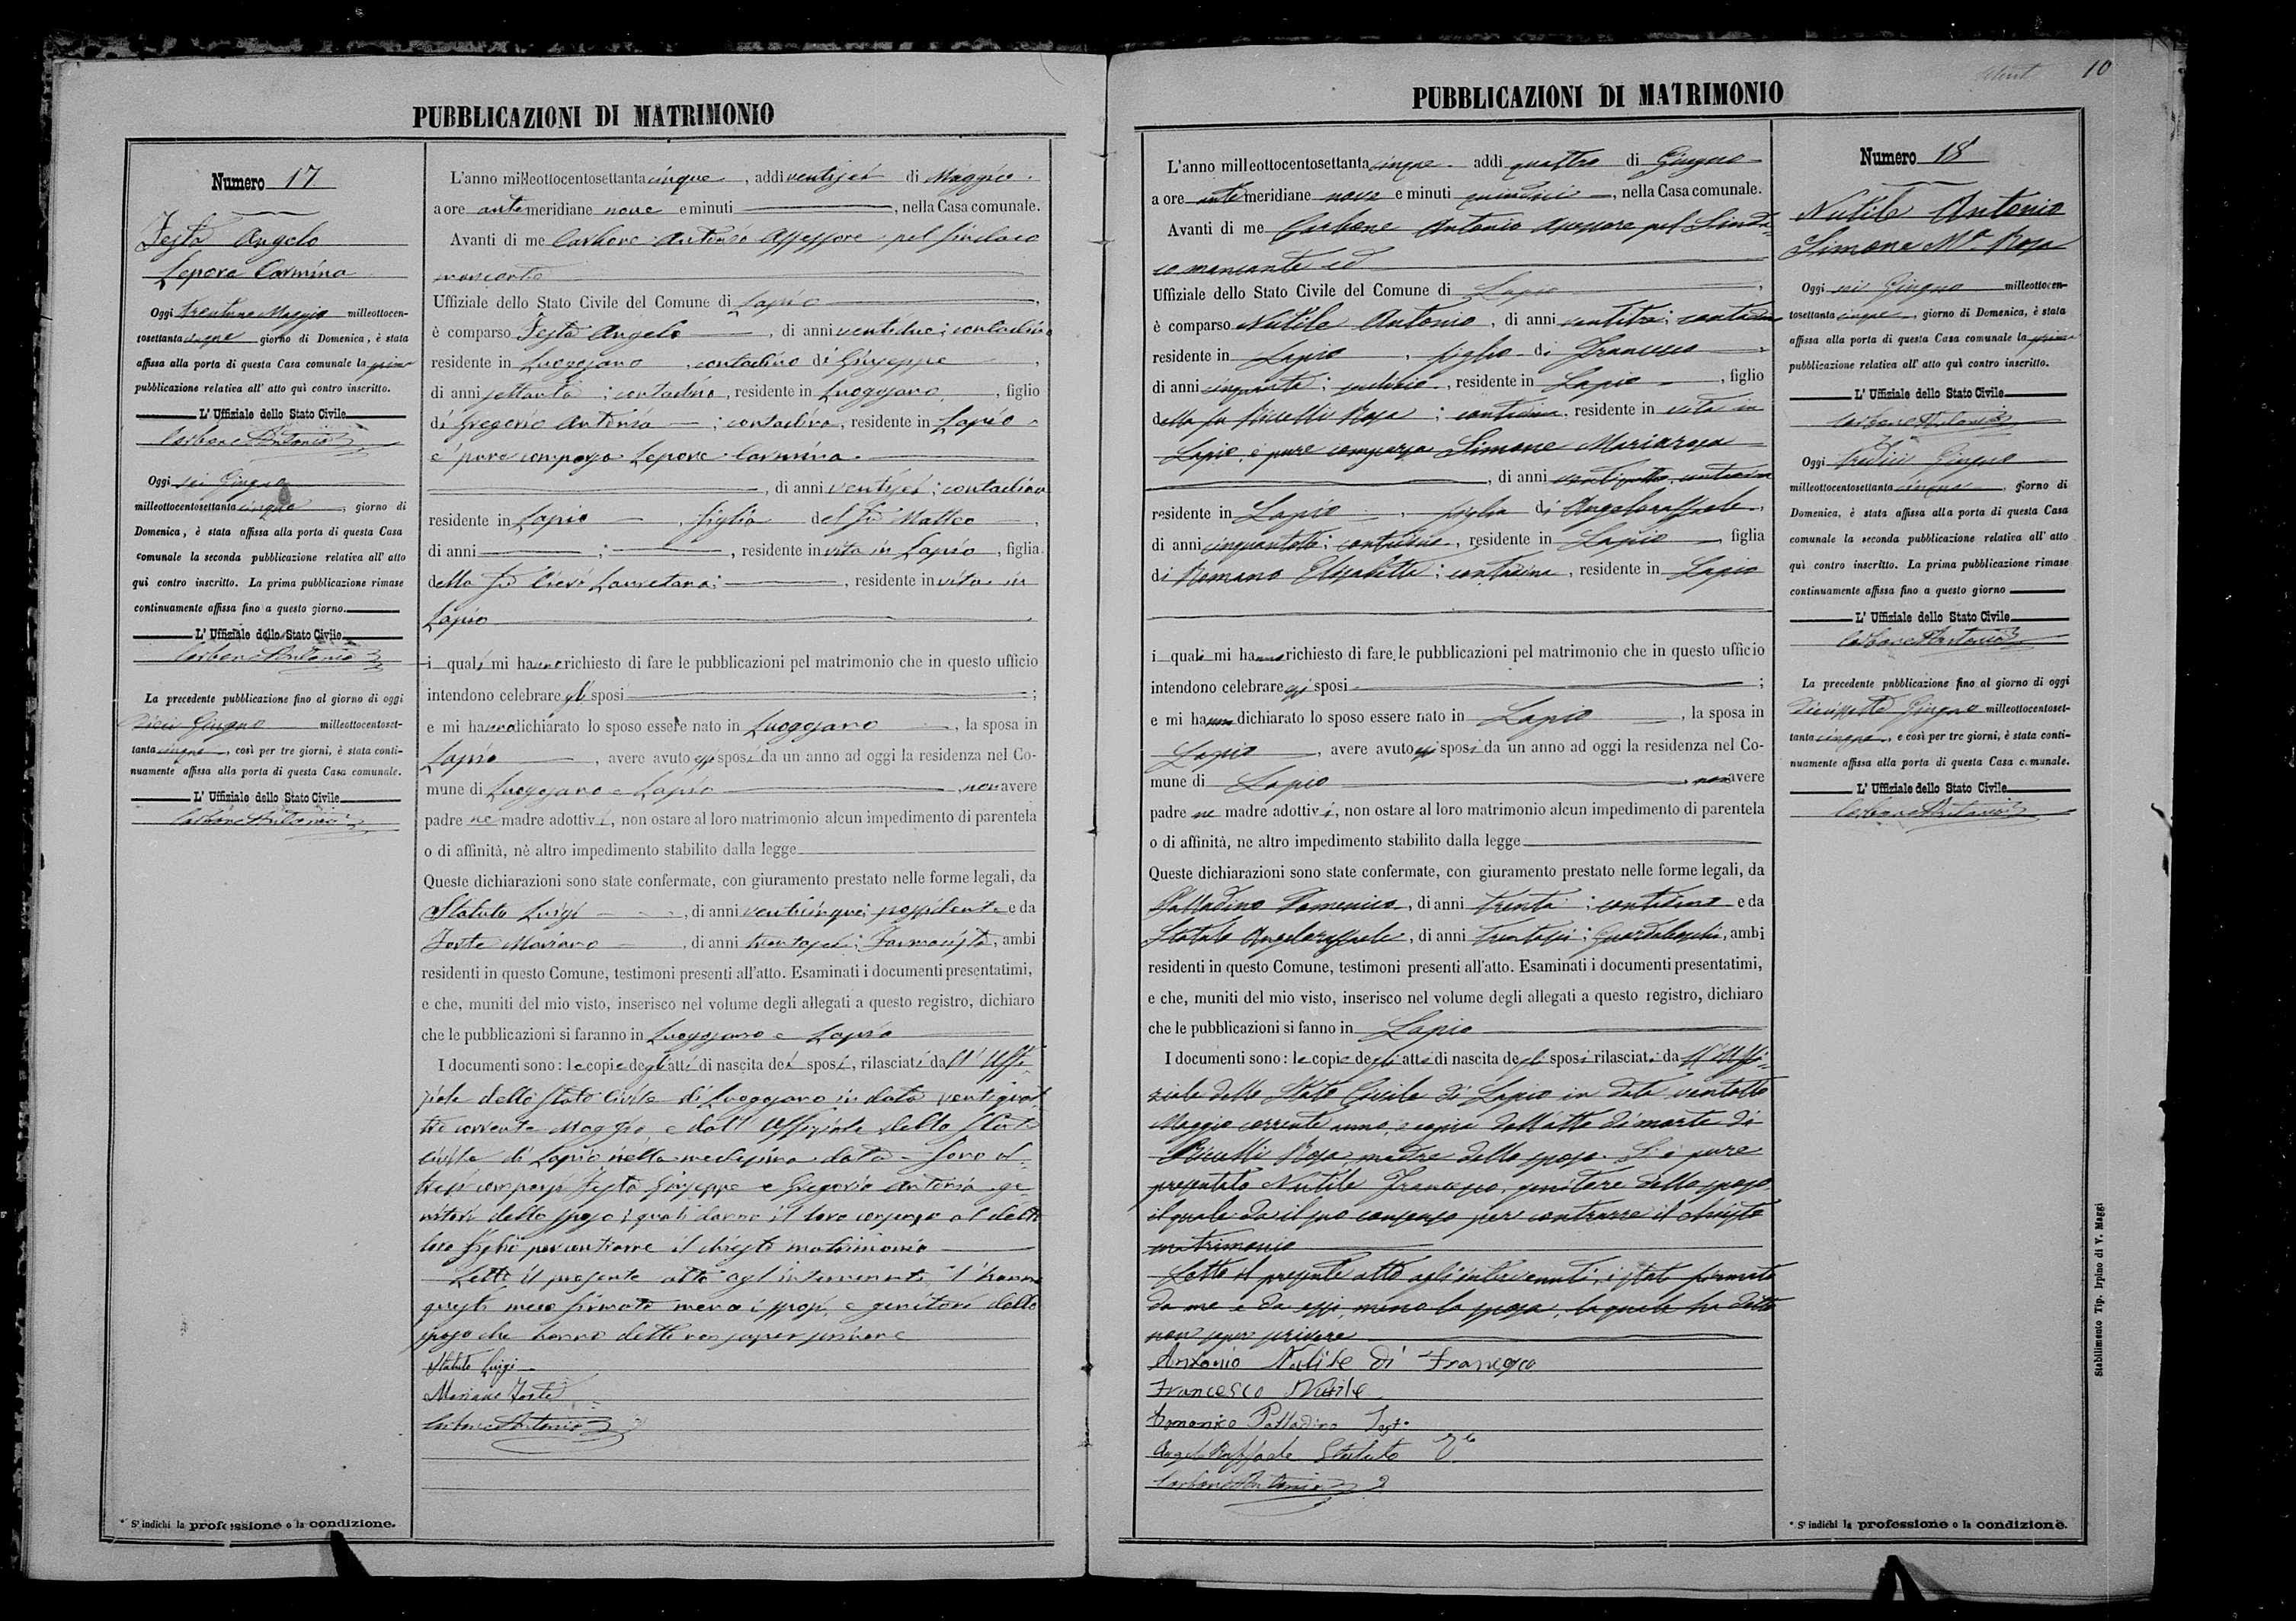 PUBBLICAZIONI DI MATRIMONIO
Numero 17
Testa Angelo
Lepore Carmina
Oggi trentuno Maggio milleottocen-
tosettanta cinque giorno di Domenica, è stata
affissa alla porta di questa Casa comunale la prima
pubblicazione relativa all' atto quì contro inscritto.
L' Uffiziale dello Stato Civile
Carbone Antonio
Oggi sei Giugno
milleottocentosettanta cinque, giorno di
Domenica, è stata affissa alla porta di questa Casa
comunale la seconda pubblicazione relativa all' atto
qui contro inscritto. La prima pubblicazione rimase
continuamente affissa fino a questo giorno.
L' Uffiziale dello Stato Civile
Carbone Antonio
La precedente pubblicazione fino al giorno di oggi
dieci Giugno milleottocentoset-
tanta cinque, così per tre giorni, è stata conti-
nuamente affissa alla porta di questa Casa comunale.
L' Uffiziale dello Stato Civile
Carbone Antonio
* S' indichi la professione o la condizione.
L'anno milleottocentosettanta cinque, addi ventisei di Maggio
a ore antemeridiane nove e minuti, nella Casa comunale.
Avanti di me Carbone Antonio Assessore pel Sindaco
mancante
Uffiziale dello Stato Civile del Comune di Lapio,
è comparso Testa Angelo, di anni ventidue; contadino
residente in Luogosano, contadino di Giuseppe,
di anni settanta; contadino, residente in Luogosano, figlio
di Gregorio Antonia; contadina, residente in Lapio
e pure comparsa Lepore Carmina
, di anni ventisei; contadina
residente in Lapio, figlia del fu Matteo,
di anni ; , residente in vita in Lapio, figlia
della fu Lauretana; , residente in vita in
Lapio
i quali mi hanno richiesto di fare le pubblicazioni pel matrimonio che in questo ufficio
intendono celebrare gli sposi;
e mi hanno dichiarato lo sposo essere nato in Luogosano, la sposa in
Lapio, avere avuto essi sposi da un anno ad oggi la residenza nel Co-
mune di Luogosano e Lapio, non avere
padre ne madre adottivi, non ostare al loro matrimonio alcun impedimento di parentela
o di affinità, nè altro impedimento stabilito dalla legge
Queste dichiarazioni sono state confermate, con giuramento prestato nelle forme legali, da
Statuto Luigi, di anni venticinque; possidente e da
Forte Mariano, di anni trentasei; Farmacista, ambi
residenti in questo Comune, testimoni presenti all'atto. Esaminati i documenti presentatimi,
e che, muniti del mio visto, inserisco nel volume degli allegati a questo registro, dichiaro
che le pubblicazioni si faranno in Luogosano e Lapio
I documenti sono: le copie degli atti di nascita dei sposi, rilasciati dall' Uffi-
ziale dello Stato Civile di Luogosano in data ventiquat-
tro corrente Maggio e dall' Uffiziale dello Stato
Civile di Lapio nella medesima data. Sono al-
tresì comparsi Testa Giuseppe e Gregorio Antonia ge-
nitori dello sposo i quali danno il loro consenso al detto
loro figlio per contrarre il chiesto matrimonio
Letto il presente atto agl'intervenuti l'hanno
questi meco firmato meno i sposi, e genitori dello
sposo che hanno detto non saper scrivere
Statuto Luigi
Mariano Forte
Carbone Antonio
PUBBLICAZIONI DI MATRIMONIO
10
L'anno milleottocentosettanta cinque addi quattro di Giugno
a ore antemeridiane nove e minuti quindici, nella Casa comunale.
Avanti di me Carbone Antonio Assessore pel Sinda-
co mancante ed
Uffiziale dello Stato Civile del Comune di Lapio,
è comparso Nutile Antonio, di anni ventitre; contadino
residente in Lapio, figlio di Francesco,
di anni cinquanta; , residente in Lapio, figlio
della fu Rosa; contadina, residente in vita in
Lapio, e pure comparsa Simone Mariarosa
, di anni ventiquattro, contadina
residente in Lapio, figlia di Angeloraffaele,
di anni cinquantotto; contadino, residente in Lapio, figlia
di Romano Elisabetta; contadina, residente in Lapio
i quali mi hanno richiesto di fare le pubblicazioni pel matrimonio che in questo ufficio
intendono celebrare essi sposi;
e mi hanno dichiarato lo sposo essere nato in Lapio, la sposa in
Lapio, avere avuto essi sposi da un anno ad oggi la residenza nel Co-
mune di Lapio, non avere
padre ne madre adottivi, non ostare al loro matrimonio alcun impedimento di parentela
o di affinità, ne altro impedimento stabilito dalla legge
Queste dichiarazioni sono state confermate, con giuramento prestato nelle forme legali, da
Palladino Domenico, di anni trenta; contadino e da
Statuto Angeloraffaele, di anni trentasei; Guardaboschi, ambi
residenti in questo Comune, testimoni presenti all'atto. Esaminati i documenti presentatimi,
e che, muniti del mio visto, inserisco nel volume degli allegati a questo registro, dichiaro
che le pubblicazioni si fanno in Lapio
I documenti sono: le copie degli atti di nascita degli sposi rilasciati da ll'Uffi-
ziale dello Stato Civile di Lapio in data ventotto
Maggio corrente anno, e copia dell'atto di morte di
Rosa, madre dello sposo. Si è pure
presentato Nutile Francesco, genitore dello sposo
il quale da il suo consenso per contrarre il chiesto
matrimonio
Letto il presente atto agli intervenuti, è stato firmato
da me e da essi, meno la sposa, la quale ha detto
non saper scrivere
Antonio Nutile di Francesco
Francesco Nutile
Domenico Palladino Test.
Angelo Raffaele Statuto
Carbone Antonio
Numero 18
Nutile Antonio
Simone Mª Rosa
Oggi sei Giugno milleottocen-
tosettanta cinque giorno di Domenica, è stata
affissa alla porta di questa Casa comunale la prima
pubblicazione relativa all' atto quì contro inscritto.
L' Uffiziale dello Stato Civile
Carbone Antonio
Oggi tredici Giugno
milleottocentosettanta cinque, giorno di
Domenica, è stata affissa alla porta di questa Casa
comunale la seconda pubblicazione relativa all' atto
quì contro inscritto. La prima pubblicazione rimase
continuamente affissa fino a questo giorno
L' Uffiziale dello Stato Civile
Carbone Antonio
La precedente pnbblicazione fino al giorno di oggi
diciassette Giugno milleottocentoset-
tanta cinque, e così per tre giorni, è stata conti-
nuamente affissa alla porta di questa Casa comunale.
L' Uffiziale dello Stato Civile
Carbone Antonio
* S' indichi la professione o la condizione.
Stabilimento Tip. Irpino di V. Maggi